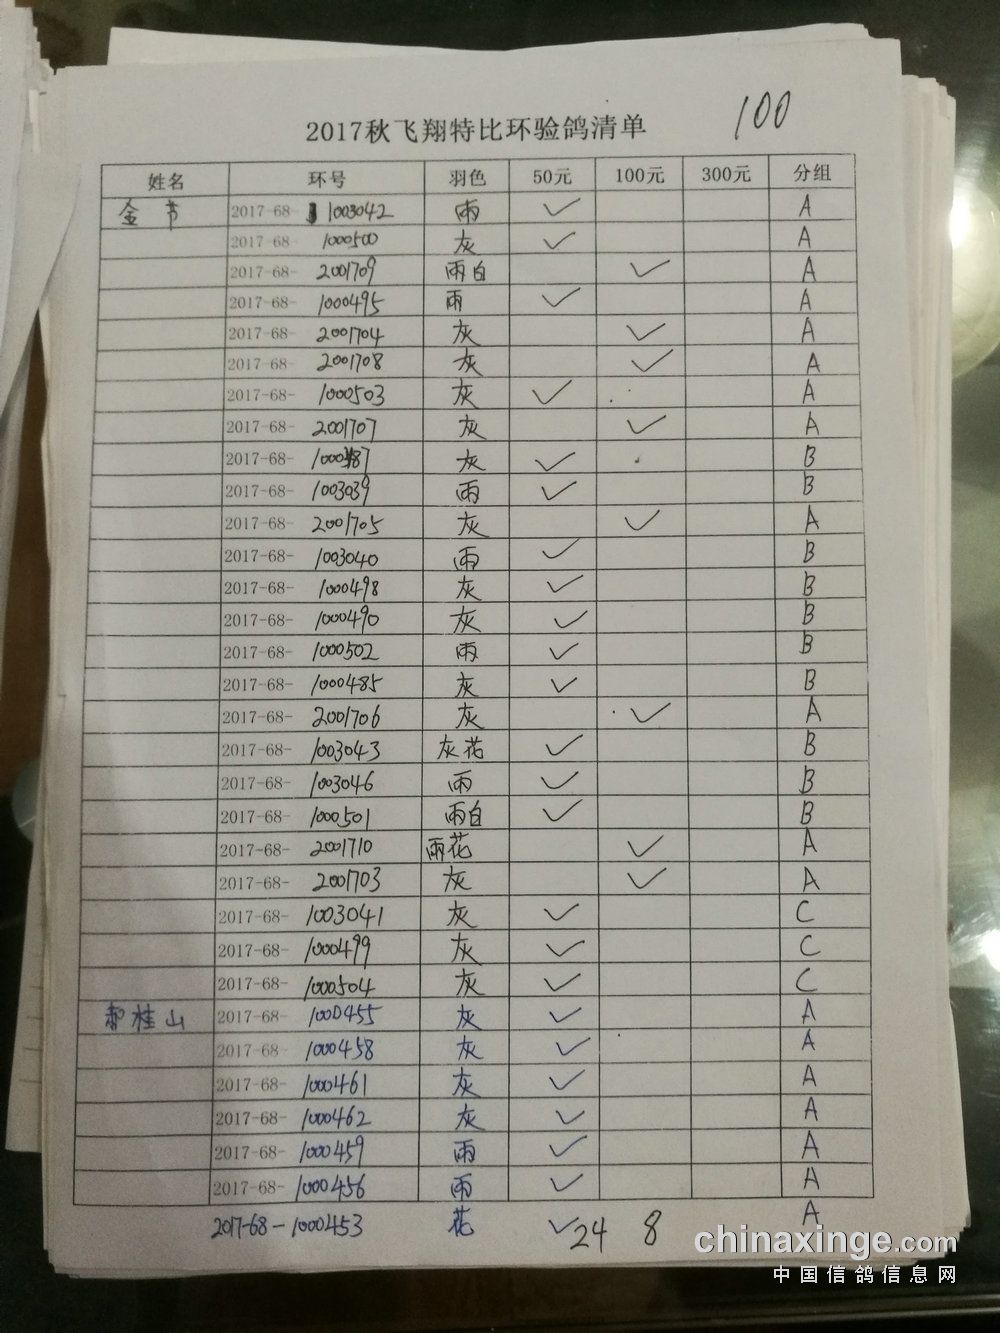 100
2017秋飞翔特比环验鸽清单
姓名 环号 羽色 50元 100元 300元 分组
金节 2017-68- 1003042 雨 ✓ A
2017-68- 1000500 灰 ✓ A
2017-68- 2001709 雨白 ✓ A
2017-68- 1000495 雨 ✓ A
2017-68- 2001704 灰 ✓ A
2017-68- 2001708 灰 ✓ A
2017-68- 1000503 灰 ✓ A
2017-68- 2001707 灰 ✓ A
2017-68- 灰 ✓ B
2017-68- 1003039 雨 ✓ B
2017-68- 2001705 灰 ✓ A
2017-68- 1003040 雨 ✓ B
2017-68- 1000498 灰 ✓ B
2017-68- 1000490 灰 ✓ B
2017-68- 1000502 雨 ✓ B
2017-68- 1000485 灰 ✓ B
2017-68- 2001706 灰 ✓ A
2017-68- 1003043 灰花 ✓ B
2017-68- 1003046 雨 ✓ B
2017-68- 1000501 雨白 ✓ B
2017-68- 2001710 雨花 ✓ A
2017-68- 2001703 灰 ✓ A
2017-68- 1003041 灰 ✓ C
2017-68- 1000499 灰 ✓ C
2017-68- 1000504 灰 ✓ C
郝桂山 2017-68- 1000455 灰 ✓ A
2017-68- 1000458 灰 ✓ A
2017-68- 1000461 灰 ✓ A
2017-68- 1000462 灰 ✓ A
2017-68- 1000459 雨 ✓ A
2017-68- 1000456 雨 ✓ A
2017-68-1000453 花 ✓ A
24 8
chinaxinge.com
中国信鸽信息网